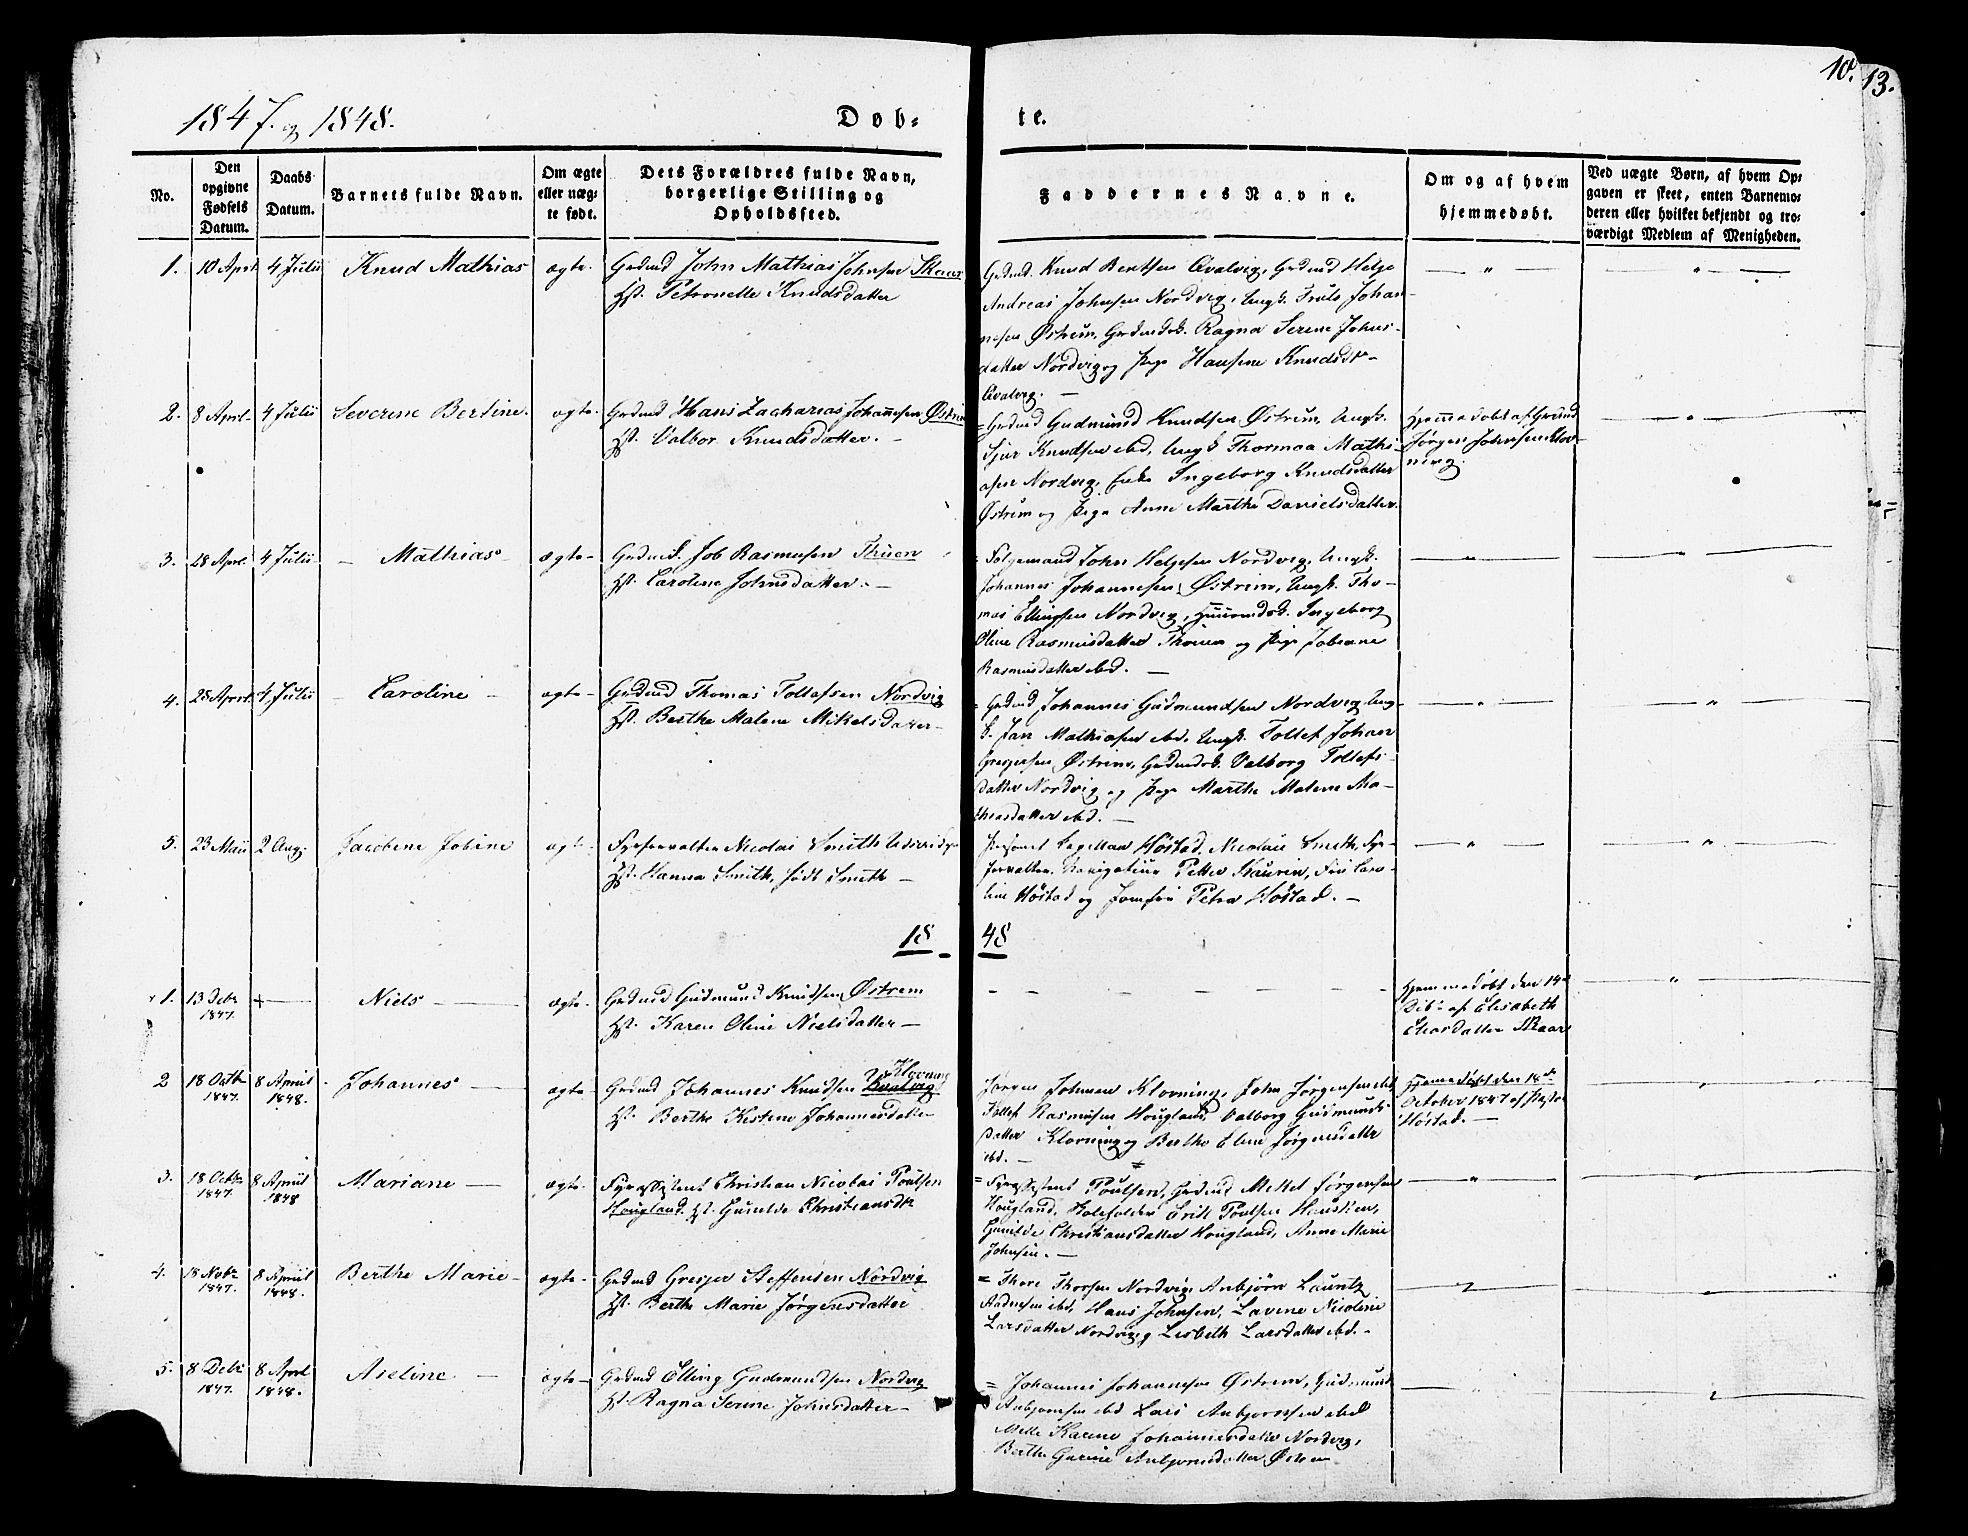 1847. og 1848.
Døb-
te.
10.
13.
No.
Den
opgivne
Fødsels
Datum.
Daabs
Datum.
Barnets fulde Navn.
Om ægte
eller uæg-
te født.
Dets Forældres fulde Navn,
borgerlige Stilling og
Opholdssted.
Faddernes Navne.
Om og af hvem
hjemmedøbt.
Ved uægte Børn, af hvem Op-
gaven er skeet, enten Barnemo-
deren eller hvilket bekjendt og tro-
værdigt Medlem af Menigheden.
1. 10 April 4 Julii Knud Mathias ægte. Grdmd John Mathias Johnsen
Hst. Petronelle Knudsdatter
Grdmd. Knud Bertsen Qvalvig, Grdmd Helge
Andreas Johnsen Nordvig, Ungk. Truls Johan-
nesen Østrem, Grdmdsk. Ragna Serine Johns-
datter Nordvig og Pige Hansine Knudsdr
Qvalvig. —
2. 8 April 4 Julii Severine Bertine. ægte. Grdmd Hans Zacharias Johannesen Østrem
Hst. Valbor Knudsdatter. —
= Grdmd Gudmund Knudsen Østrem, Ungk.
Sjur Knudsen ibd, Ungk Thormoa Mathi-
asen Nordvig, Enke Ingeborg Knudsdatter
Østrem og Pige Anne Marthe Danielsdatter.
Hjemmedøbt af Grdmd
Jørgen Johnsen Klov-
ning.
3. 28 April 4 Julii — Mathias — ægte — Grdmd. Job Rasmusen Thuen
Hst. Caroline Johnsdatter. —
= Følgemand John Helgesen Nordvig, Ungk.
Johannes Johannesen Østrem, Ungk. Tho-
mas Ellingsen Nordvig, Huusmdsk. Ingeborg
Oline Rasmusdatter Thuen og Pige
Rasmusdatter ibd. —
4. 28 April 4 Julii — Caroline — ægte — Grdmd Thomas Tollefsen Nordvig
Hst. Berthe Malene Mikelsdatter —
= Grdmd Johannes Gudmundsen Nordvig, Ung-
k. Jan Mathiasen ibd, Ungk. Tollef Johan
Grespersen Østrem, Grdmdsk. Valborg Tollefs-
datter Nordvig og Pige Marthe Malene Ma-
thiasdatter ibd. —
5. 23 Maii 2 Aug. Jacobine Jobine ægte. Fyrforvalter Nicolai Smith
Hst. Hanna Smith, født Smith —
Personel Capellan Høstad, Nicolai Smith, Fyr-
forvalter, Petter Kaurin, Fru Caro-
line Høstad og Jomfru Petra Høstad. —
18 48
1. 13 Debr
1847. + Niels — ægte — Grdmd Gudmund Knudsen Østrem
Hst. Karen Oline Nielsdatter —
Hjemmedøbt den 14de
Debr af Elisabeth
Eliasdatter Skaar
2 18 Octbr
1847. 8 April
1848. Johannes — ægte — Grdmd Johannes Knudsen Qvalvig Klovning
Hst. Berthe Kistine Johannesdatter
Jørgen Johnsen Klovning, John Jørgensen ibd,
Tollef Rasmusen Hougland, Valborg Gudmunds-
datter Klovning og Berthe Eline Jørgensdatter
ibd. —
Hjemmedøbt den 18de
October 1847 af Pastor
Høstad. —
3. 18 Octbr
1847. 8 April
1848 Mariane — ægte. Fyrassistens Christian Nicolai Poulsen
Hougland. Hst. Gunilde Christiansdtr
= Fyrassistens Poulsen, Grdmd Mikkel Jørgensen
Hougland, Erik Poulsen
Gunilde Christiansdatter Hougland, Anne Marie
Johnsen. —
4. 18 Nobr
1847. 8 April
1848. Berthe Marie — ægte — Grdmd Gresper Steffensen Nordvig
Hst. Berthe Marie Jørgensdatter
= Thore Thorsen Nordvig, Anbjørn Lauritz
Andersen ibd, Hans Johnsen, Lavine Nicoline
Larsdatter Nordvig, Lisbeth Larsdatter ibd. —
5. 8 Debr
1847. 8 April
1848. Aseline — ægte — Grdmd Elling Gudmundsen Nordvig
Hst. Ragna Serine Johnsdatter —
= Johannes Johannesen Østrem, Gudmund
Anbjørnsen ibd Lars Anbjørnsen ibd
Karen Johannesdatter Nordvig,
Berthe Gurine Anbjørnsdatter Østrem